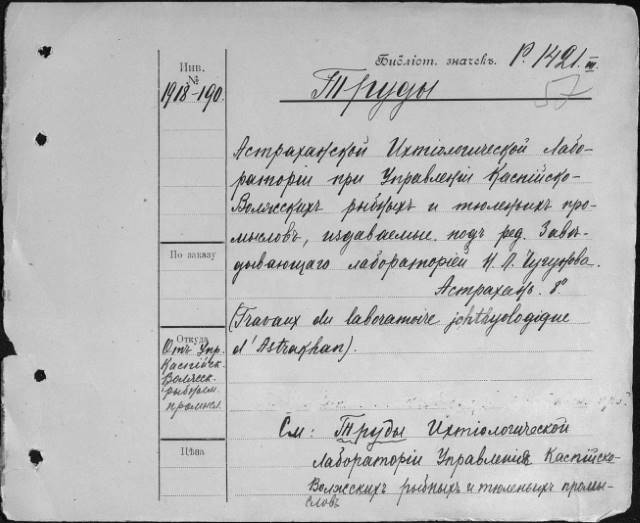 Инв. №
1918-190.
Библіот. значекъ.
Р. 1421. III
57
Труды
Астраханской Ихтіологической Лабо-
раторіи при Управленіи Каспійско-
Волжскихъ рыбныхъ и тюленьихъ про-
мысловъ, издаваемые подъ ред. Завѣ-
дывающаго лабораторіей Н. Л. Чугунова.
Астрахань. 8°
(Travaux du laboratoire johthyologique
d'Astrakhan).
По заказу
Откуда
Отъ Упр.
Каспійск.
Волжск.
рыбным.
промысл.
Цѣна
См: Труды Ихтіологической
Лабораторіи Управленія Каспійско-
Волжскихъ рыбныхъ и тюленьихъ промы-
словъ